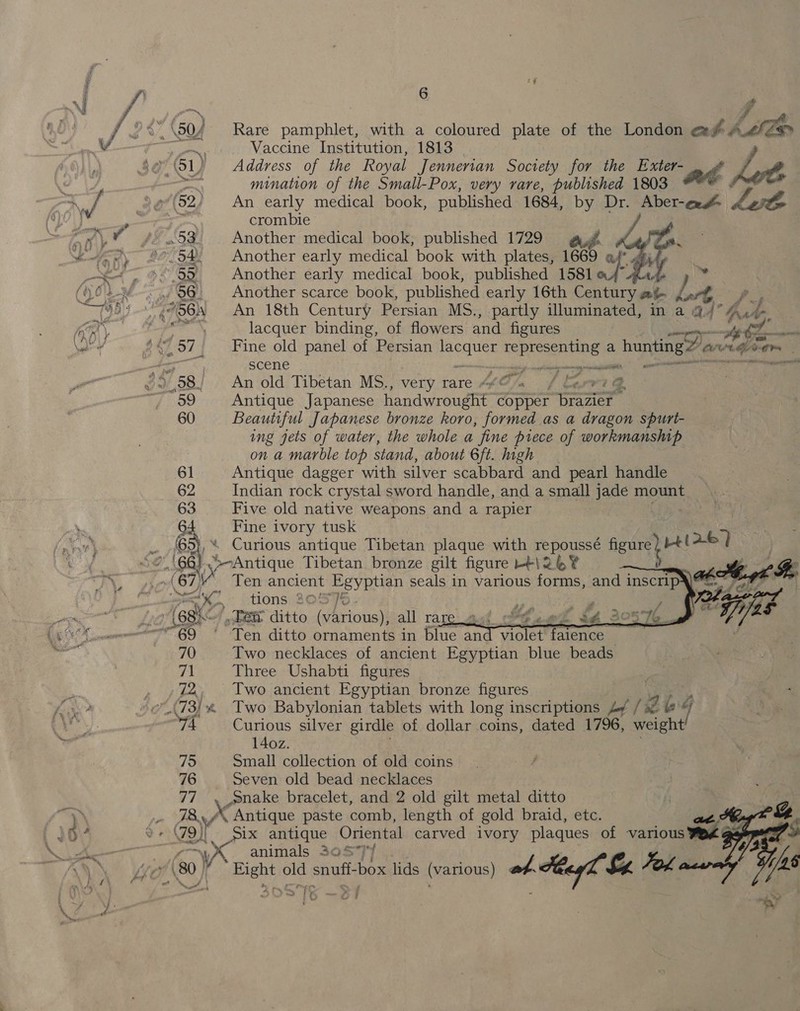 6
50 Rare pamphlet, with a coloured plate of the London
Vaccine Institution, 1813
51 Address of the Royal Jennerian Society for the Exter-
mination of the Small-Pox, very rare, published 1803
52 An early medical book, published 1684, by Dr. Aber-
crombie
53 Another medical book, published 1729
54 Another early medical book with plates, 1669
55 Another early medical book, published 1581
56 Another scarce book, published early 16th Century
56A An 18th Century Persian MS., partly illuminated, in a
lacquer binding, of flowers and figures
57 Fine old panel of Persian lacquer representing a hunting
scene
58 An old Tibetan MS., very rare
59 Antique Japanese handwrought copper brazier
60 Beautiful Japanese bronze koro, formed as a dragon spurt-
ing jets of water, the whole a fine piece of workmanship
on a marble top stand, about 6ft. high
61 Antique dagger with silver scabbard and pearl handle
62 Indian rock crystal sword handle, and a small jade mount
63 Five old native weapons and a rapier
64 Fine ivory tusk
65 Curious antique Tibetan plaque with repoussé figure
66 Antique Tibetan bronze gilt figure
67 Ten ancient Egyptian seals in various forms, and inscrip-
tions 20575
68 Ten ditto (various), all rare 20576
69 Ten ditto ornaments in blue and violet faience
70 Two necklaces of ancient Egyptian blue beads
71 Three Ushabti figures
72 Two ancient Egyptian bronze figures
73 Two Babylonian tablets with long inscriptions
74 Curious silver girdle of dollar coins, dated 1796, weight
14oz.
75 Small collection of old coins
76 Seven old bead necklaces
77 Snake bracelet, and 2 old gilt metal ditto
78 Antique paste comb, length of gold braid, etc.
79 Six antique Oriental carved ivory plaques of various
animals
80 Eight old snuff-box lids (various)